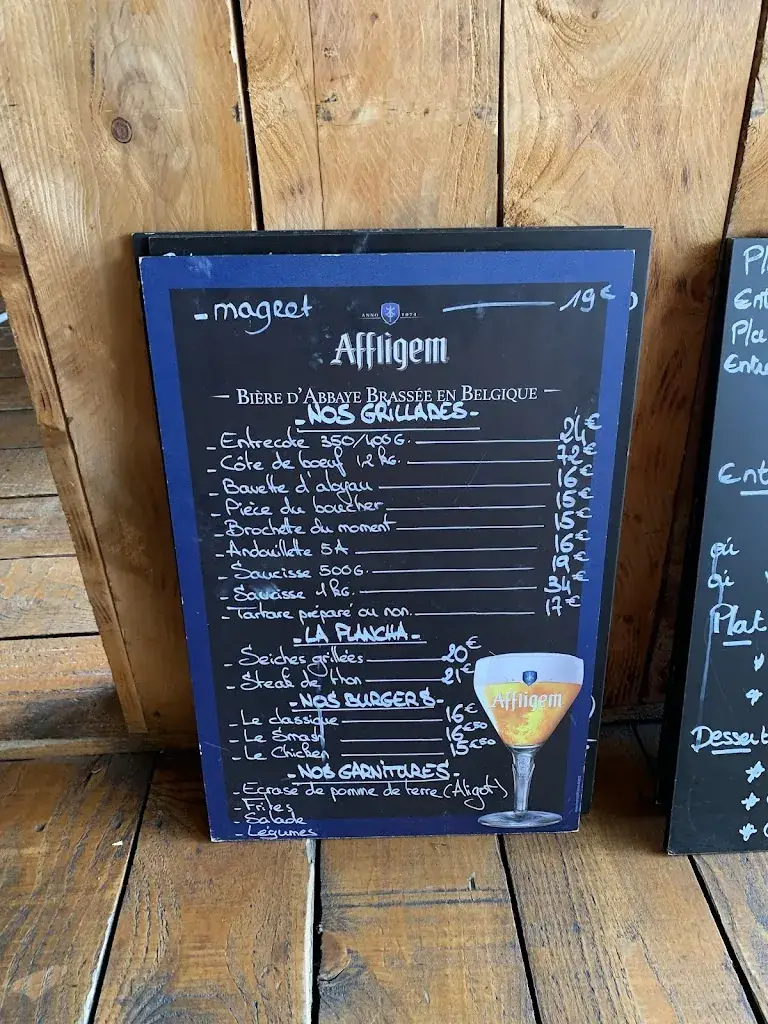 - magret 19€
ANNO 1074
Affligem
BIÈRE D'ABBAYE BRASSÉE EN BELGIQUE
- NOS GRILLADES -
- Entrecote 350/400G. 24€
- Côte de boeuf 1,2 kG. 72€
- Bavette d'aloyau 16€
- Pièce du boucher 15€
- Brochette du moment 15€
- Andouillette 5A 16€
- Saucisse 500G. 19€
- Saucisse 1kG. 34€
- Tartare préparé ou non. 17€
- LA PLANCHA -
- Seiches grillées 20€
- Steak de thon 21€
- NOS BURGERS -
- Le classique 16€
- Le Smash 16€50
- Le Chicken 15€50
- NOS GARNITURES -
- Ecrasé de pomme de terre (Aligot)
- Frites
- Salade
- Légumes
Affligem
Plat
Dessert